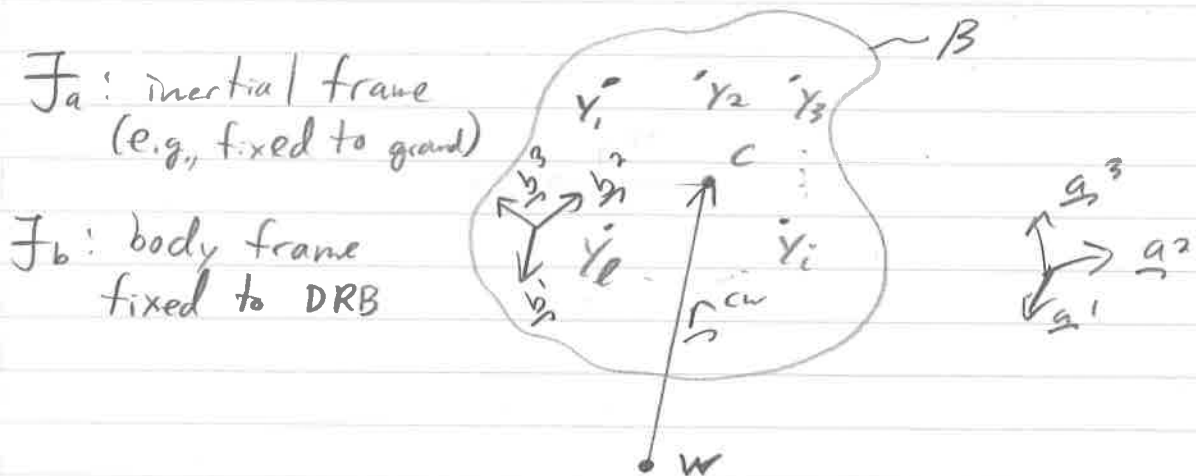 β
Fa : inertial frame
(e.g., fixed to ground)
Fb : body frame
fixed to DRB
Y1 Y2 Y3
C
b3 b2
b1
Yl Yi
r CW
a3
a2
a1
W